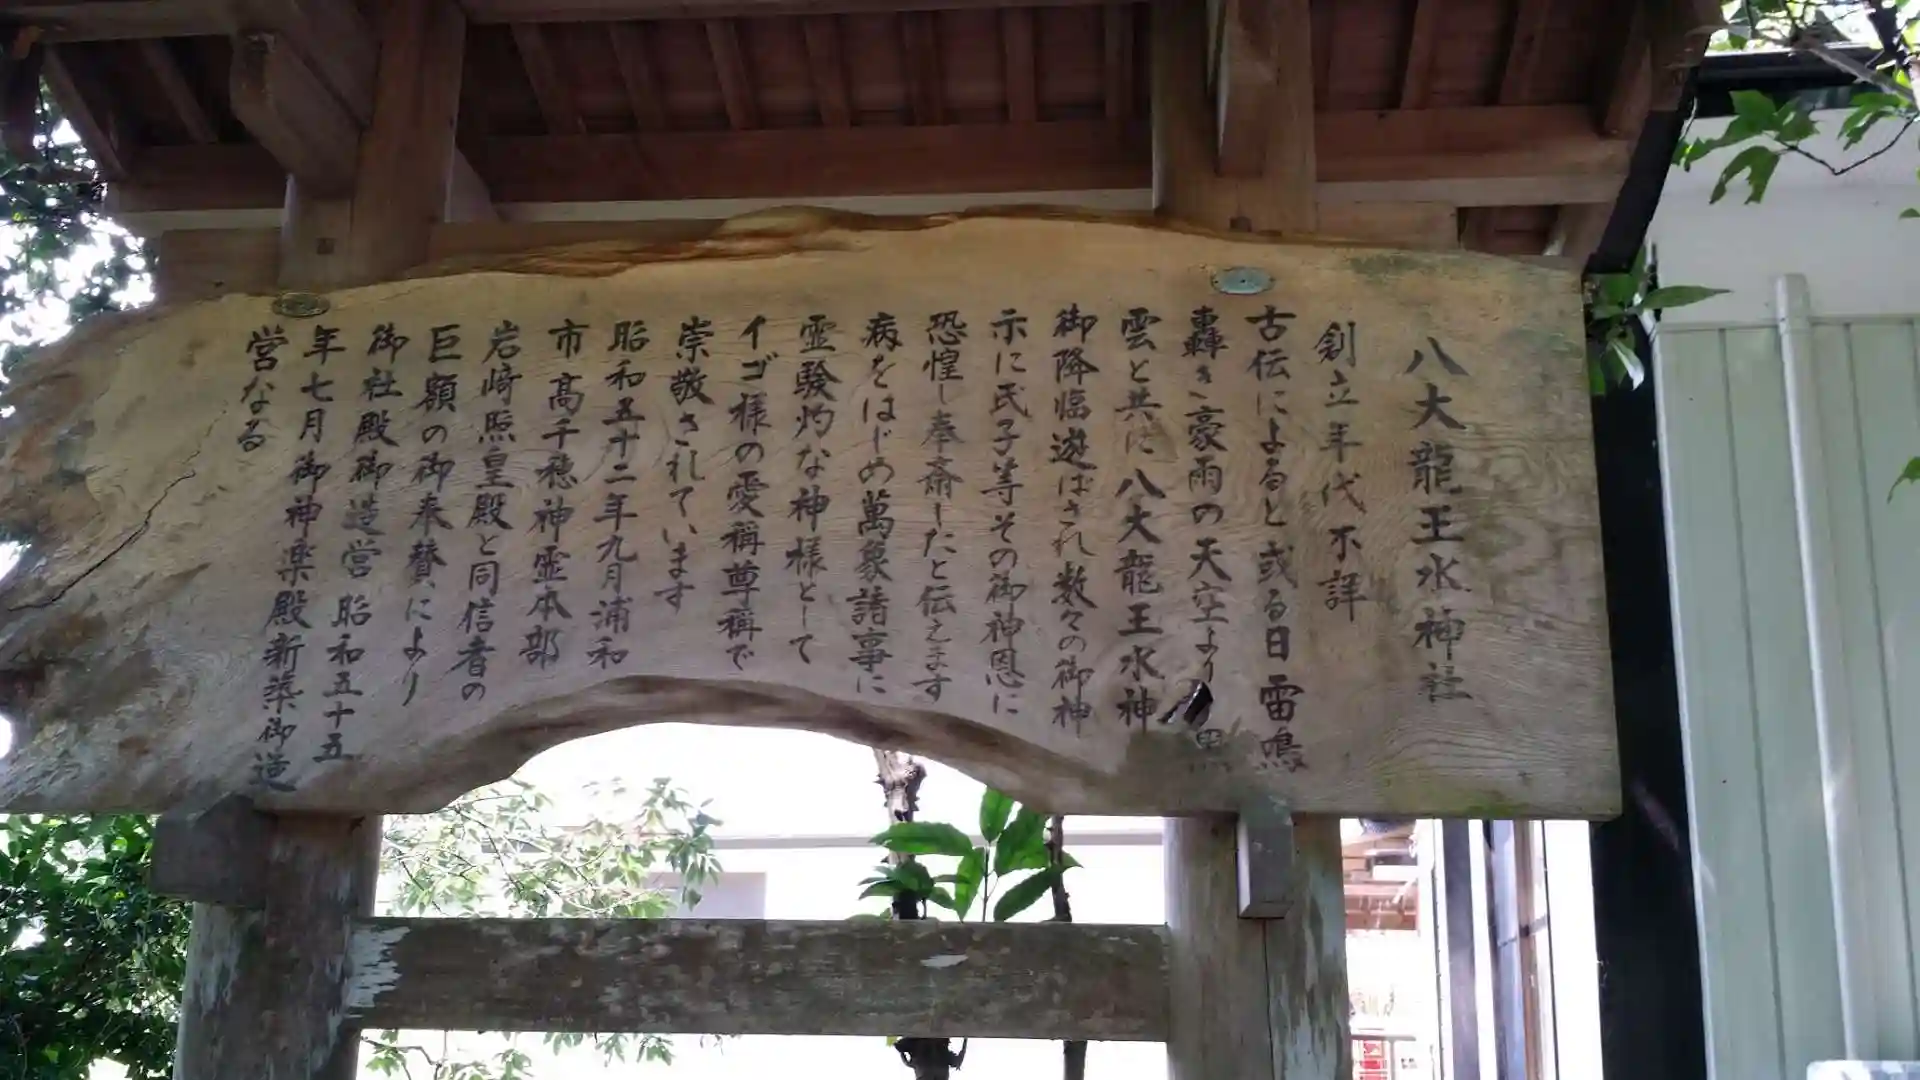 八大龍王水神社
創立年代不詳
古伝によると或る日雷鳴
轟き豪雨の天空より黒
雲と共に八大龍王水神
御降臨遊ばされ数々の御神
示に民子等その御神恩に
恐惶し奉斎したと伝えます
病をはじめ萬象諸事に
霊験灼な神様として
イゴ様の愛称尊称で
崇敬されています
昭和五十二年九月浦和
市高千穂神霊本部
岩崎照皇殿と同信者の
巨額の御奉賛により
御社殿御造営昭和五十五
年七月御神楽殿新築御造
営なる